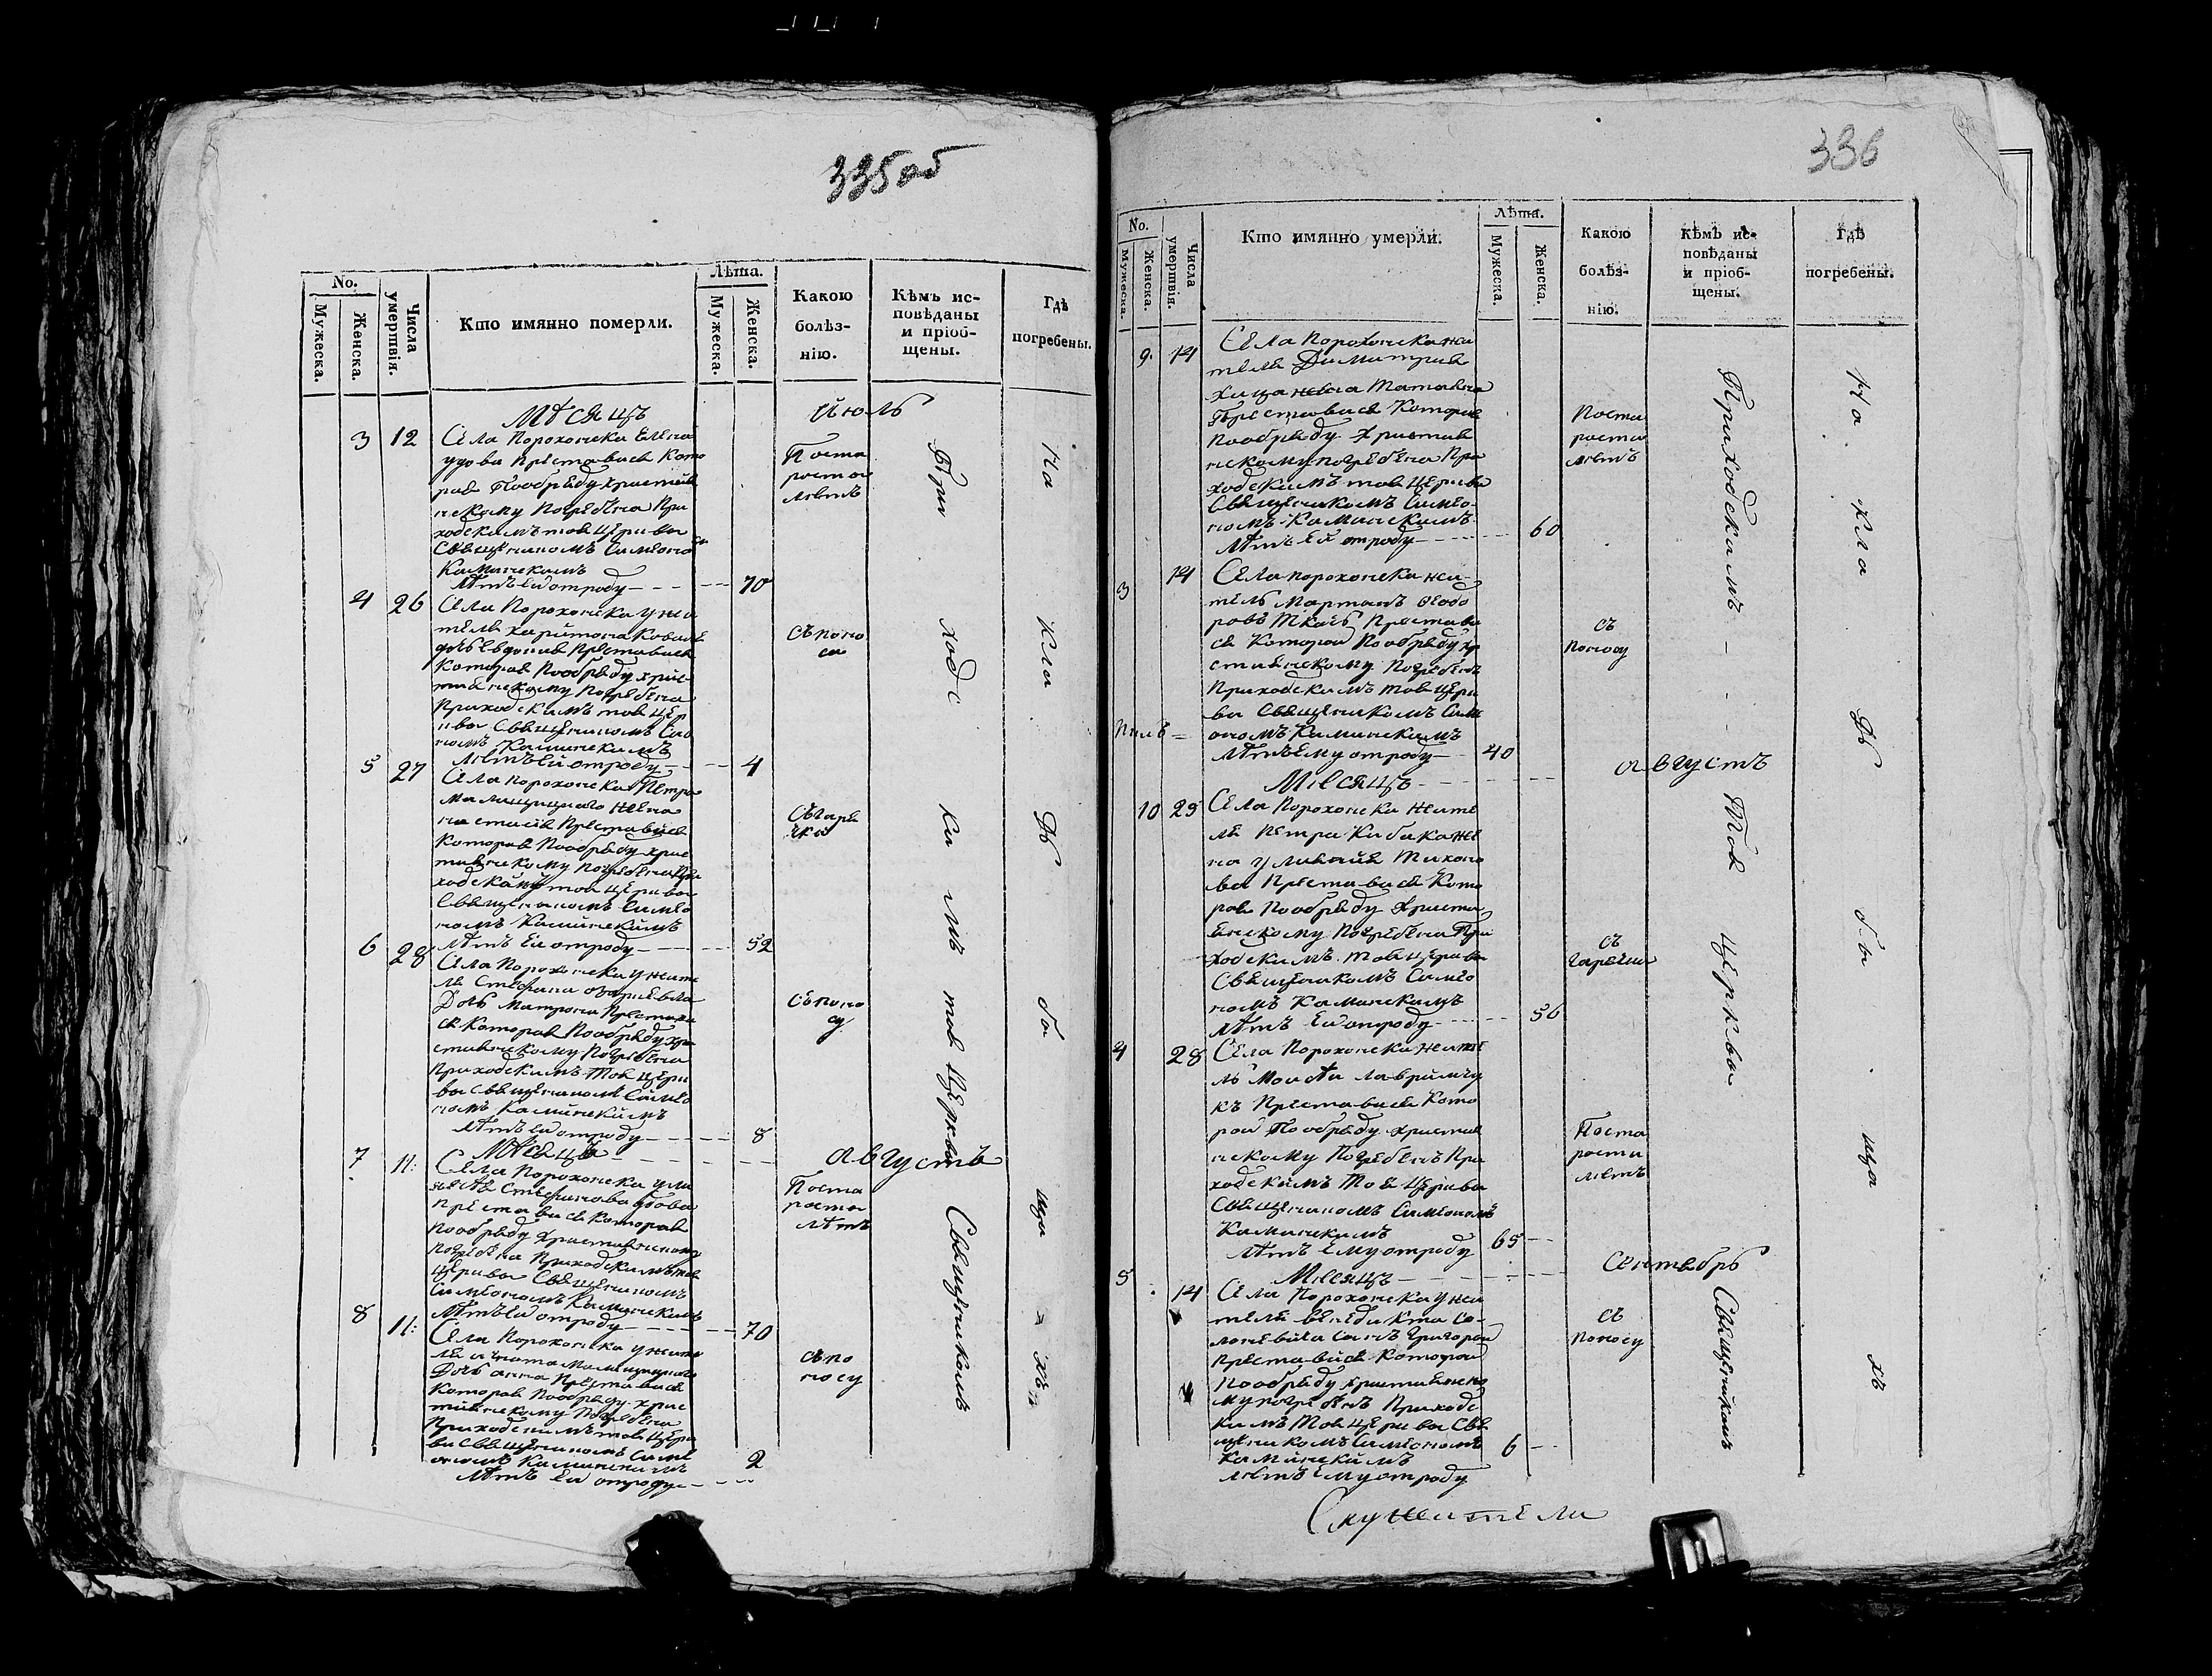 335 об
No.
Мужеска.
Женска.
Числа умертвія.
Кто имянно померли.
Лѣта.
Мужеска.
Женска.
Какою болѣз-
нію.
Кѣмъ ис-
повѣданы
и пріоб-
щены.
Гдѣ
погребены.
Мѣсяцъ Июль
3 12 Села Порохонска Елена
удова Преставися Кото
рая Пообряду христия
нскому Погребена При
ходскимъ тоя Церкви
Священикомъ Симеоно
Каминскимъ
Лѣтъ Ей отроду 70
Поста
рости
лѣтъ
4 26 Села Порохонска у жи
теля Харитона
дочь Евдокия Преставися
Которая Пообряду хрис
тиянскому Погребена
Приходскимъ тоя Цер
кви Священикомъ Сим
номъ Каминскимъ
лѣтъ Ей отроду 4
Съ поно
са
5 27 Села Порохонска Петра
жена
Преставися
Которая Пообряду хрис
тиянскому Погребена При
ходскимъ тоя Церкви
Священикомъ Симео
номъ Каминскимъ
лѣтъ Ей отроду 52
Съ горя
чки
6 28 Села Порохонска у жите
ля Стефана
Дочь Матрона Престави
ся Которая Пообряду хри
стиянскому Погребена
Приходскимъ Тоя Церк
ви Священикомъ Симео
номъ Каминскимъ
Лѣтъ Ей отроду 8
Съ поно
су
Мѣсяцъ Августъ
7 11: Села Порохонска
Стефанова удова
Преставися Которая
Пообряду Християнскому
Погребена Приходскимъ тоя
Церкви Священикомъ
Симеономъ Каминскимъ
Лѣтъ Ей отроду 70
Поста
рости
Лѣтъ
8 11: Села Порохонска у жите
ля
Дочь Анна Преставися
Которая Пообряду хрис
тиянскому Погребена
Приходскимъ тоя Церк
ви Священикомъ Симе
ономъ Каминскимъ
Лѣтъ Ей отроду 2
Съ по
носу
Приходскимъ тоя Церкви Священикомъ
На кладбищахъ
336
No.
Мужеска.
Женска.
Числа умертвія.
Кто имянно умерли.
Лѣта.
Мужеска.
Женска.
Какою
болѣз-
нію.
Кѣмъ ис-
повѣданы
и пріоб-
щены.
Гдѣ
погребены.
9. 14 Села Порохонска жи
теля Димитрия
жена Татияна
Преставися Которая
Пообряду Христия
нскому погребена При
ходскимъ тоя Церкви
Священикомъ Симео-
номъ Каминскимъ
Лѣтъ Ей отроду 60
Поста
рости
лѣтъ
3 14 Села порохонска жи-
тель Мартинъ Феодо
ровъ Ткачъ Престави
ся Которой Пообряду хр
стиянскому Погребенъ
Приходскимъ тоя Церк
ви Священикомъ Симе
ономъ Каминскимъ
Лѣтъ Ему отроду 40
съ
поносу
Мѣсяцъ Августъ
10 25 Села Порохонска жите
ля Петра Кибика же
на Улияния Тихоно
ва Преставися Кото
рая Пообряду Христи
янскому Погребена При
ходскимъ тоя Церкви
Священикомъ Симео
номъ Каминскимъ
Лѣтъ Ей отроду 56
съ
горячки
4 28 Села Порохонска жите
ль Моисѣи Лавримчу
къ Преставися Кото
рой Пообряду христия
нскому Погребенъ При
ходскимъ Тоя Церкви
Священикомъ Симеономъ
Каминскимъ
Лѣтъ Ему отроду 65
Поста
рости
лѣтъ
Мѣсяцъ Сентябрь
5 14 Села Порохонска у жи
теля Венедикта Со-
ловевича Синъ Григорой
Преставися Которой
Пообряду християнско
му погребенъ Приходс
кимъ Тоя Церкви Свя
щеникомъ Симеономъ
Каминскимъ
лѣтъ Ему отроду 6
съ
поносу
Приходскимъ Тоя Церкви Священикомъ
На кладбищахъ